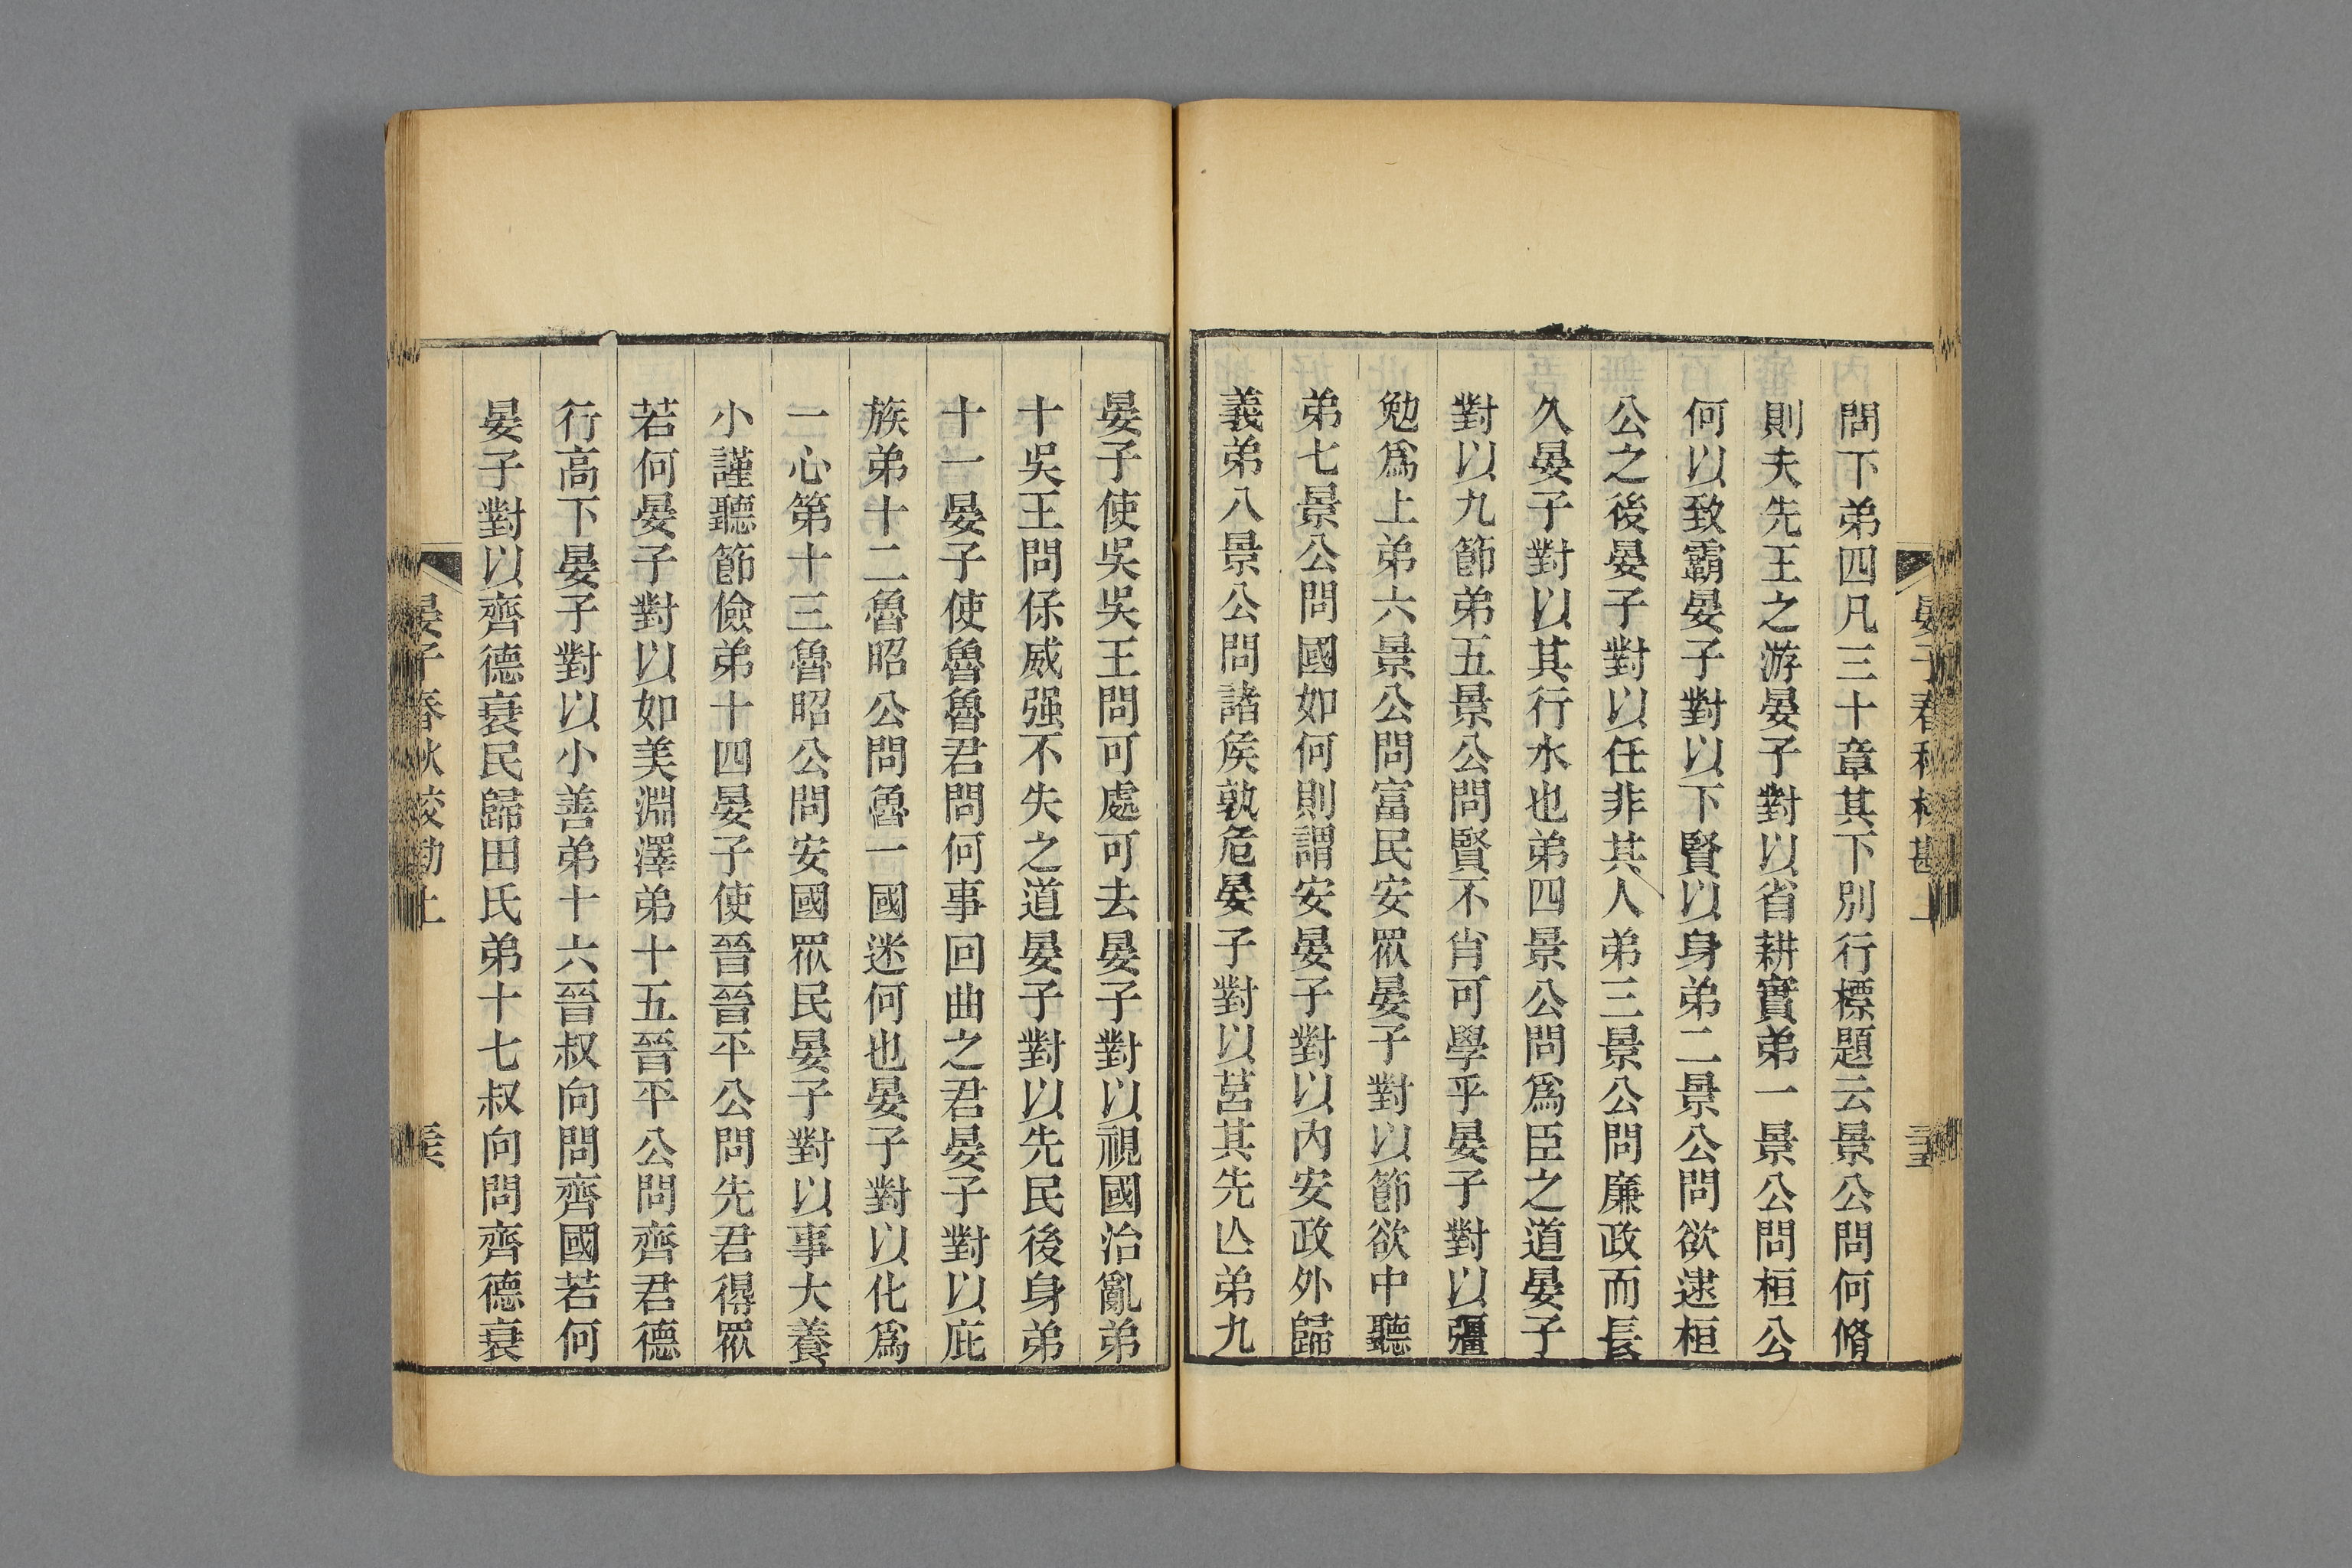 問下弟四凡三十章其下別行標題云景公問何脩
則夫先王之游晏子對以省耕實弟一景公問桓公
何以致霸晏子對以下賢以身弟二景公問欲逮桓
公之後晏子對以任非其人弟三景公問廉政而長
久晏子對以其行水也弟四景公問爲臣之道晏子
對以九節弟五景公問賢不肖可學乎晏子對以彊
勉爲上弟六景公問富民安眾晏子對以節欲中聽
弟七景公問國如何則謂安晏子對以內安政外歸
義弟八景公問諸侯孰危晏子對以莒其先亾弟九
晏子使吳吳王問可處可去晏子對以視國治亂弟
十吳王問保威强不失之道晏子對以先民後身弟
十一晏子使魯魯君問何事回曲之君晏子對以庇
族弟十二魯昭公問魯一國迷何也晏子對以化爲
一心第十三魯昭公問安國眾民晏子對以事大養
小謹聽節儉弟十四晏子使晉晉平公問先君得眾
若何晏子對以如美淵澤弟十五晉平公問齊君德
行高下晏子對以小善弟十六晉叔向問齊國若何
晏子對以齊德衰民歸田氏弟十七叔向問齊德衰
晏子春秋校勘上